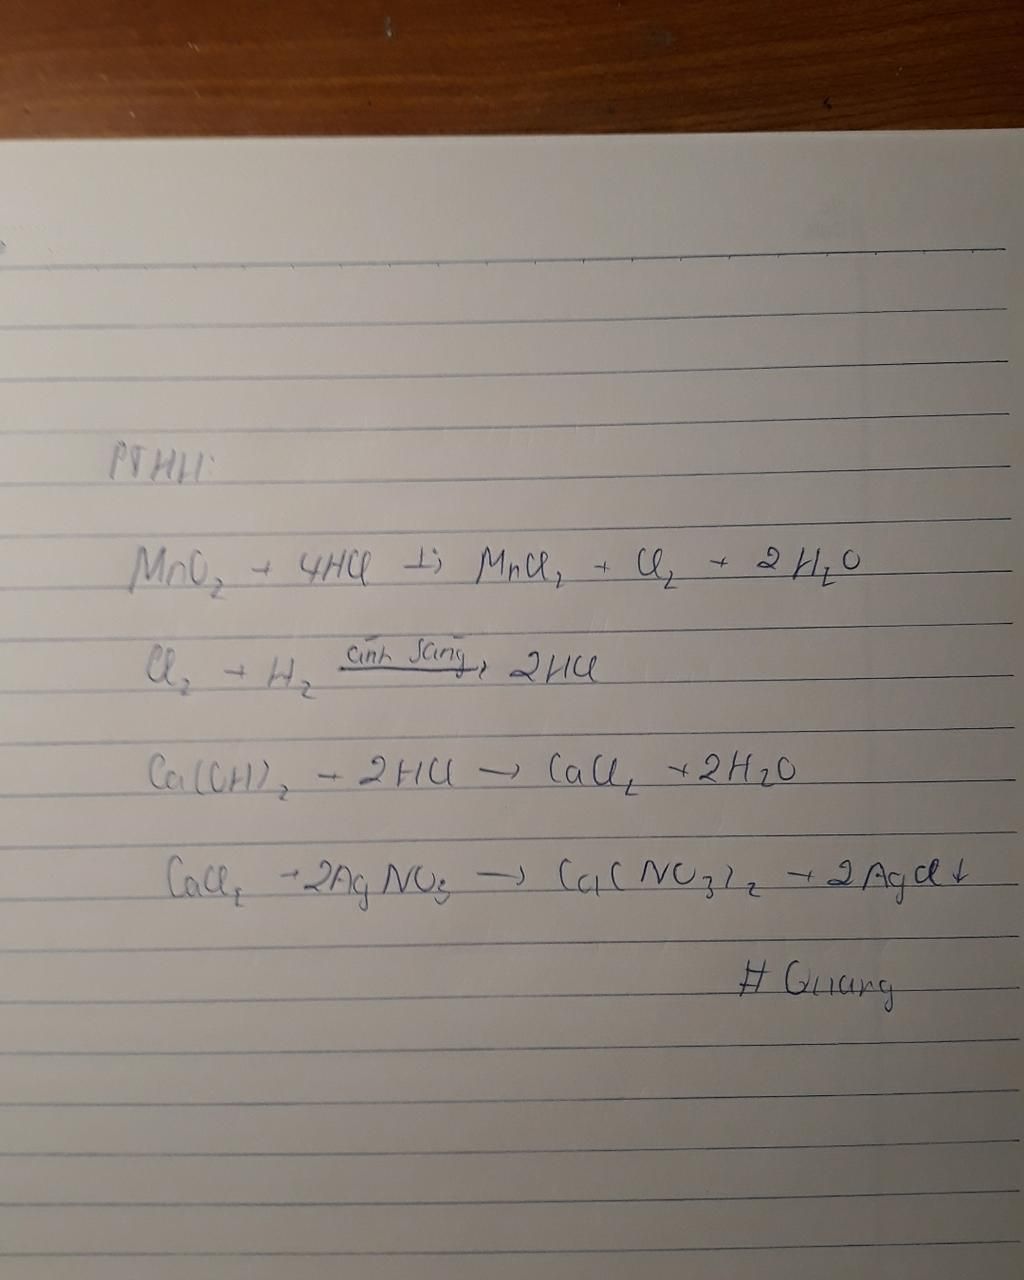 PTHH:
MnO₂ + 4HCl → MnCl₂ + Cl₂ + 2H₂O
Cl₂ + H₂ ánh sáng → 2HCl
Ca(OH)₂ + 2HCl → CaCl₂ + 2H₂O
CaCl₂ + 2AgNO₃ → Ca(NO₃)₂ + 2AgCl↓
# Quang